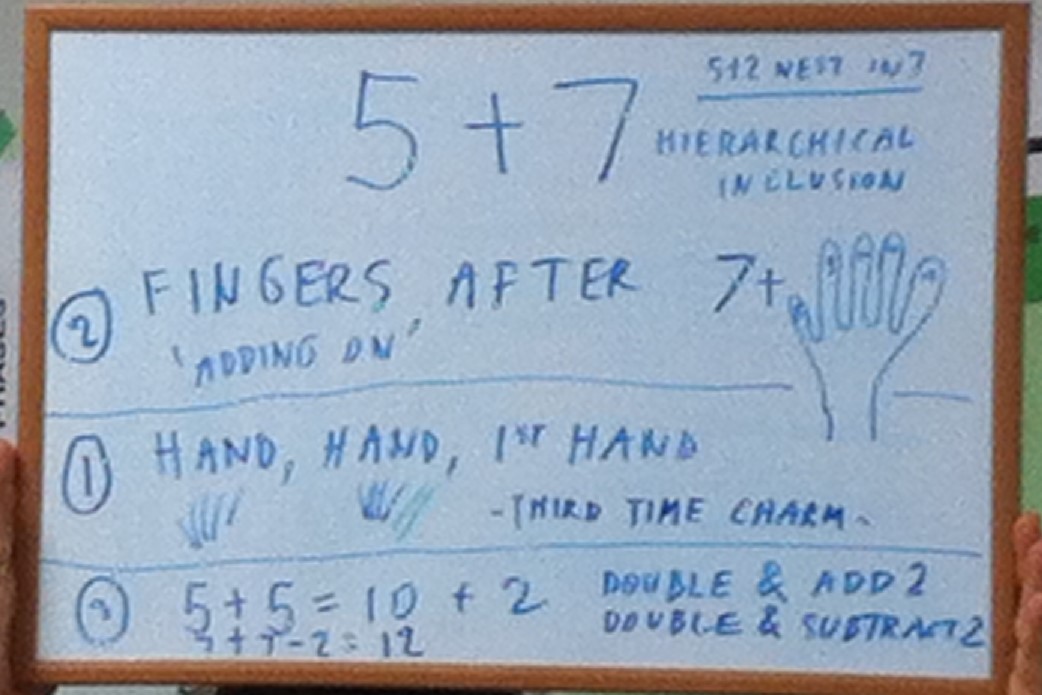 5 + 7
5+2 NEST IN 7
HIERARCHICAL
INCLUSION
② FINGERS AFTER 7+
'ADDING ON'
① HAND, HAND, 1ST HAND
-THIRD TIME CHARM-
③ 5+5=10 + 2 DOUBLE & ADD 2
7+7-2=12 DOUBLE & SUBTRACT 2